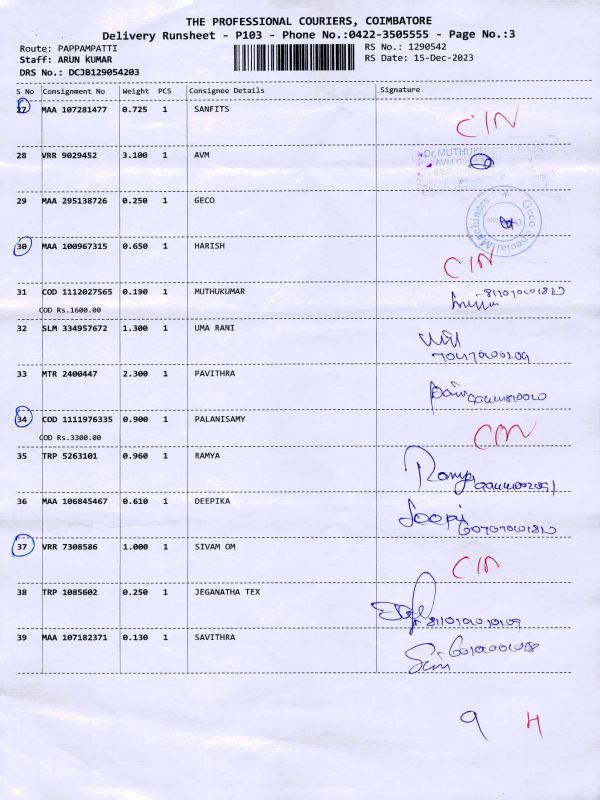 THE PROFESSIONAL COURIERS, COIMBATORE
Delivery Runsheet - P103 - Phone No.:0422-3505555 - Page No.:3
Route: PAPPAMPATTI RS No.: 1290542
Staff: ARUN KUMAR RS Date: 15-Dec-2023
DRS No.: DCJB129054203
S No Consignment No Weight PCS Consignee Details Signature
27 MAA 107281477 0.725 1 SANFITS CIN
28 VRR 9029452 3.100 1 AVM
Dr. MUTHUKU
29 MAA 295138726 0.250 1 GECO
Geco Special Machiners
30 MAA 100967315 0.650 1 HARISH CIN
31 COD 1112027565 0.190 1 MUTHUKUMAR
COD Rs.1600.00
32 SLM 334957672 1.300 1 UMA RANI
33 MTR 2400447 2.300 1 PAVITHRA
34 COD 1111976335 0.900 1 PALANISAMY CIN
COD Rs.3300.00
35 TRP 5263101 0.960 1 RAMYA Ramya
36 MAA 106845467 0.610 1 DEEPIKA
37 VRR 7308586 1.000 1 SIVAM OM CIN
38 TRP 1085602 0.250 1 JEGANATHA TEX
39 MAA 107182371 0.130 1 SAVITHRA
9 4